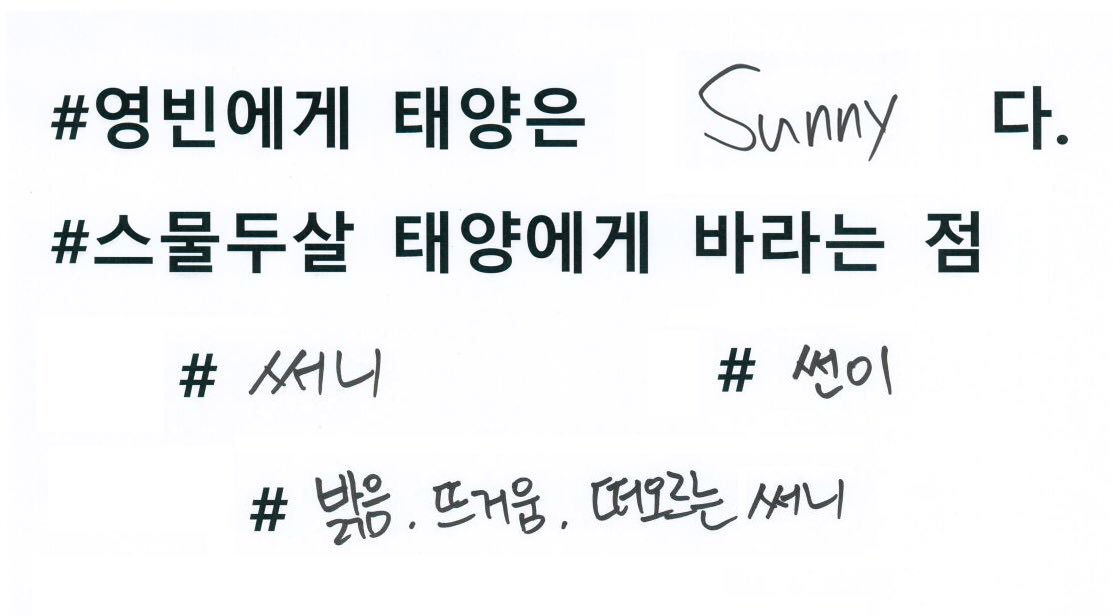 #영빈에게 태양은 Sunny 다.
#스물두살 태양에게 바라는 점
# 써니 # 썬이
# 밝음. 뜨거움. 떠오르는 써니